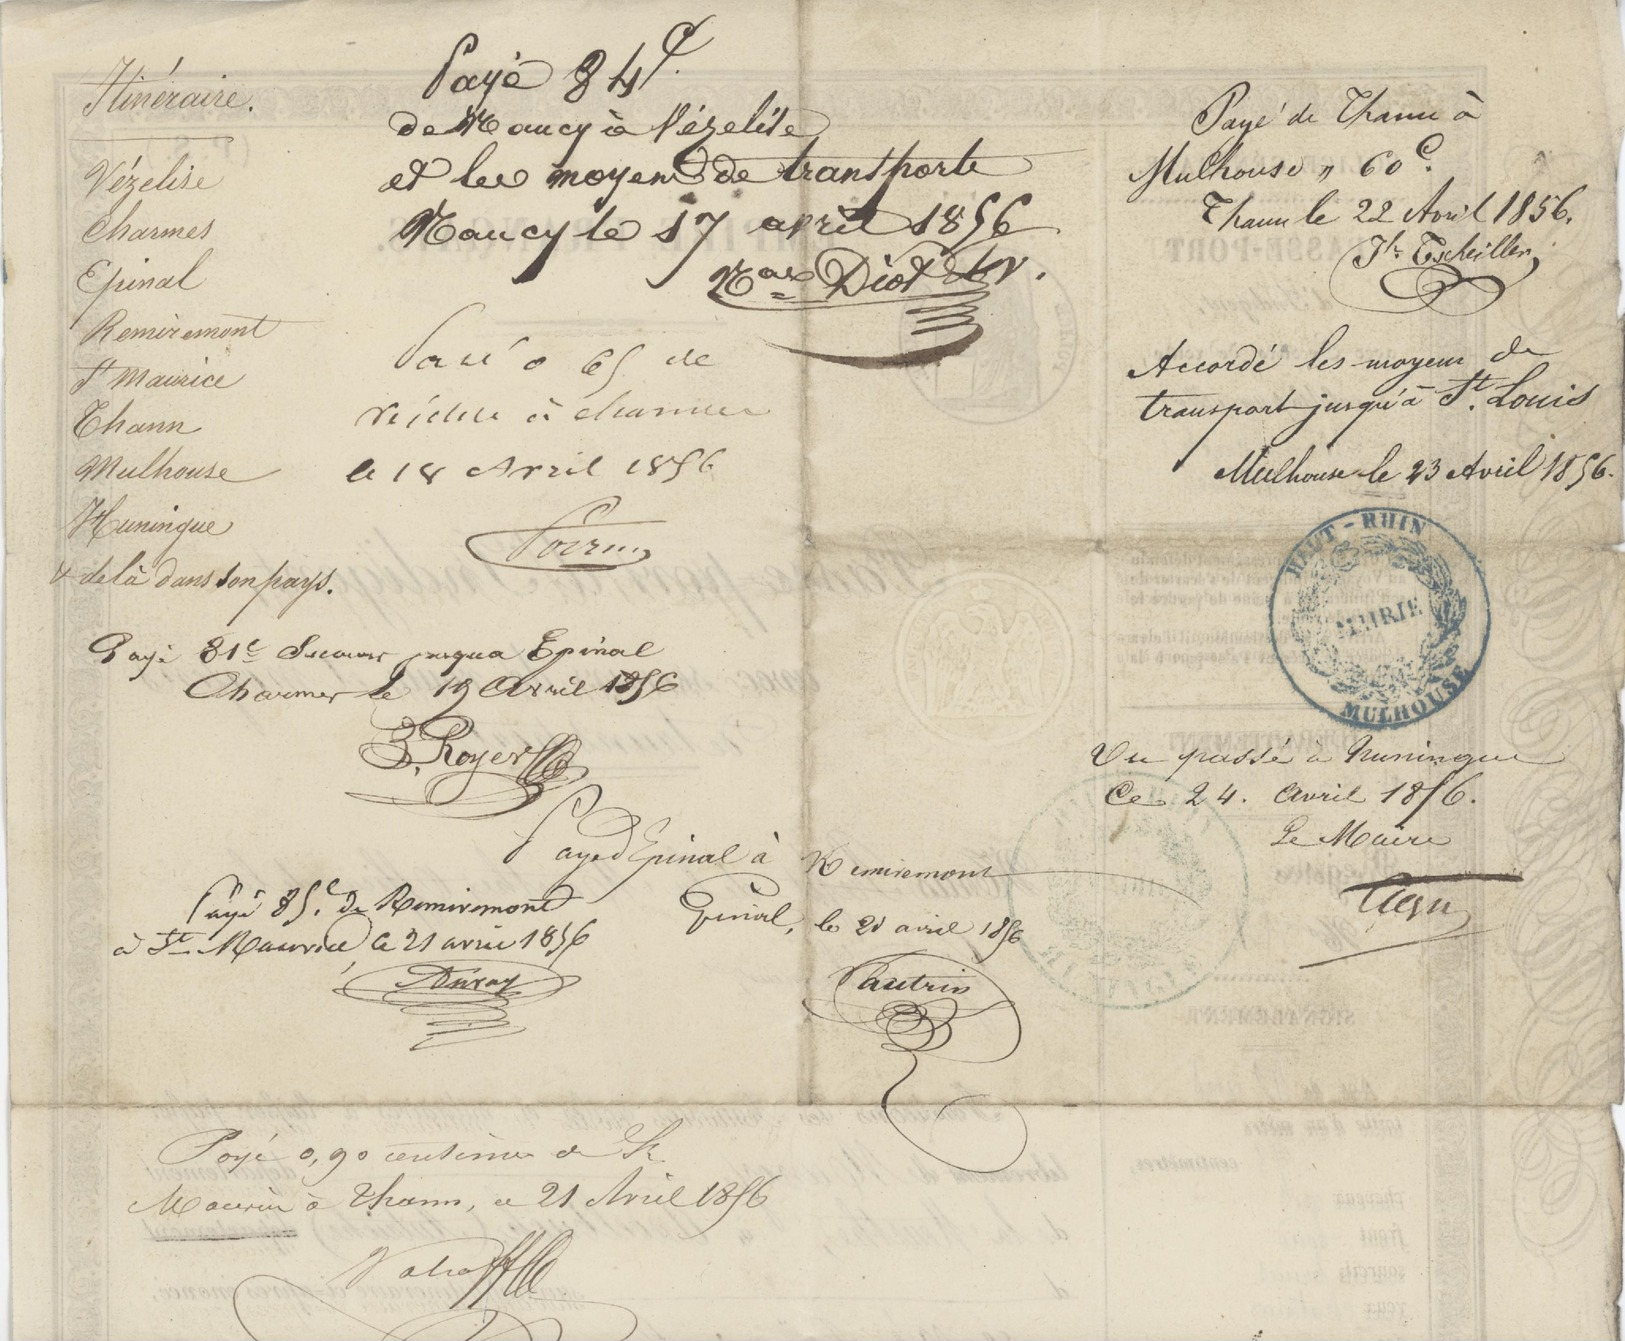 Itinéraire.
Vézelise
Charmes
Epinal
Remiremont
St Maurice
Thann
Mulhouse
Huningue
& delà dans son pays.
Payé 84 c.
de Nancy à Vézelise
et les moyens de transporte
Nancy le 17 avril 1856
Diot
Payé 0 65 de
Vézelise à Charmes
le 18 Avril 1856
Payé 81c Secours jusqua Epinal
Charmes le 19 Avril 1856
Royer
Payé d'Epinal à Remiremont
Epinal, le 20 avril 1856
Pautrin
Payé 85c. de Remiremont
à St Maurice le 21 avril 1856
Payé 0,90 centimes de St
Maurice à Thann, le 21 Avril 1856
Payé de Thann à
Mulhouse „ 60 c.
Thann le 22 Avril 1856.
Accordé les moyens de
transport jusqu'à St. Louis
Mulhouse le 23 Avril 1856.
HAUT-RHIN
MAIRIE
MULHOUSE
Vu passé à Huningue
Ce 24. Avril 1856.
Le Maire
PASSE-PORT
SIGNALEMENT